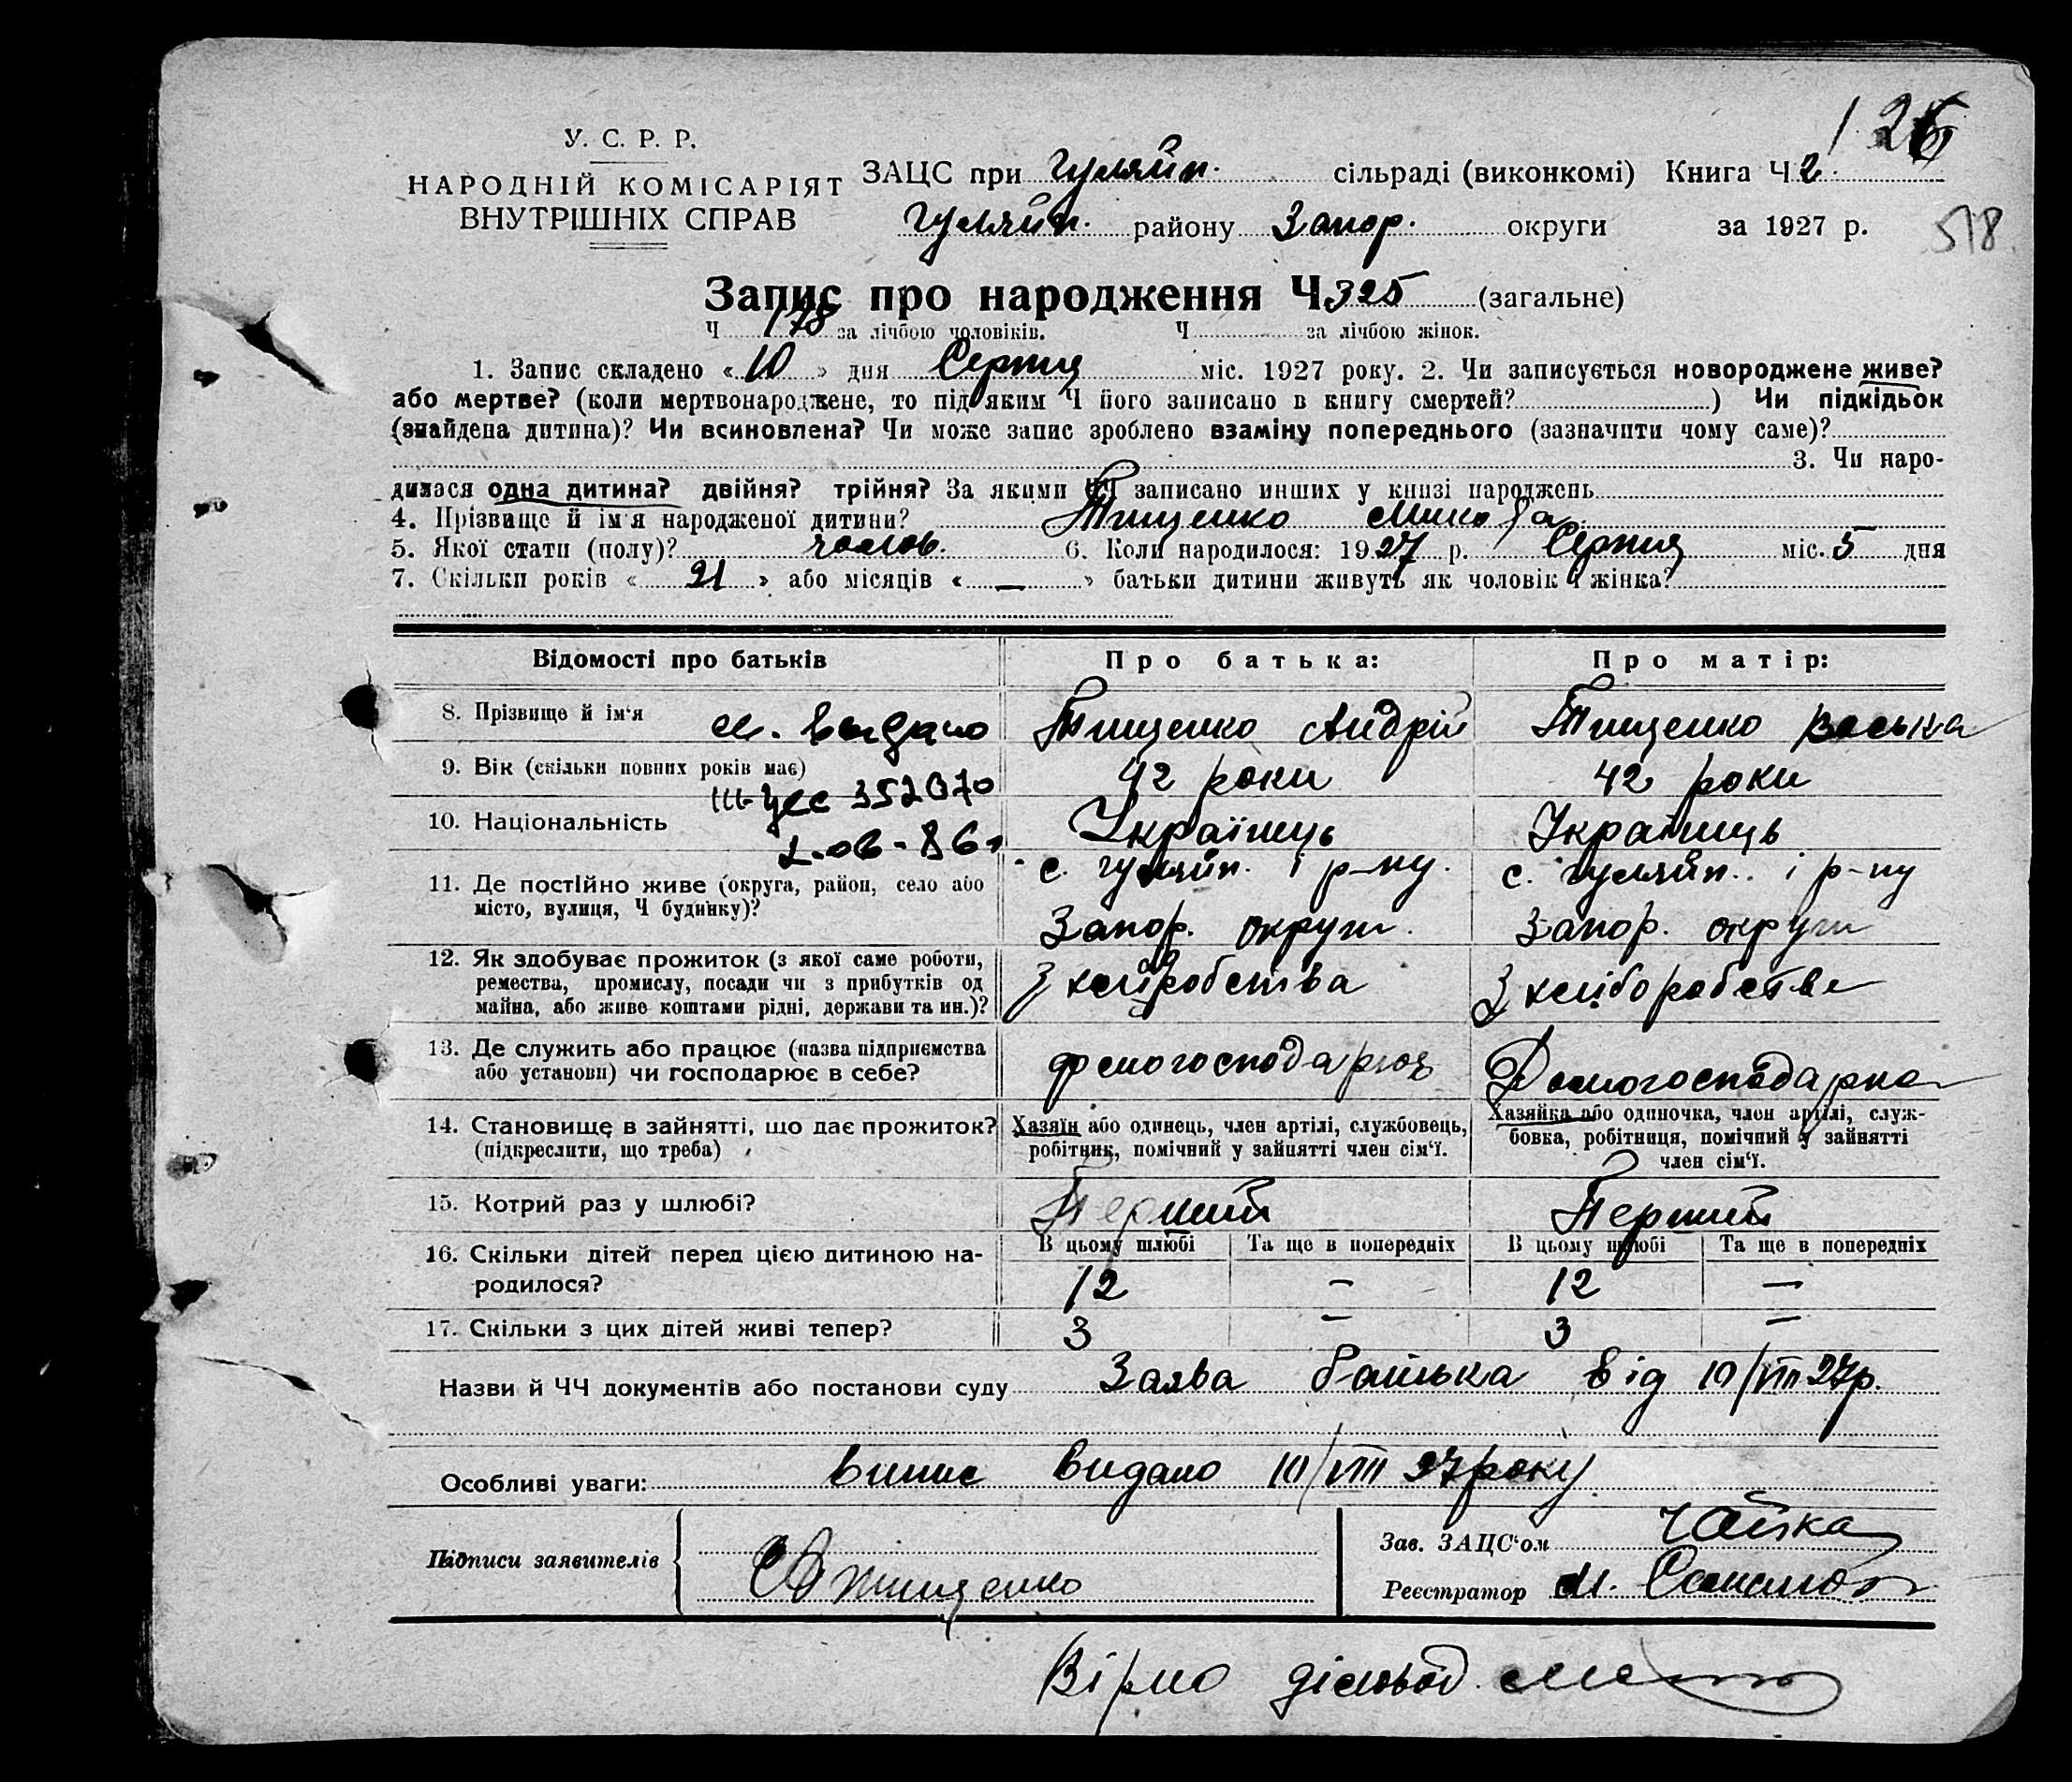 126
У. С. Р. Р.
НАРОДНІЙ КОМІСАРІЯТ
ВНУТРІШНІХ СПРАВ
ЗАЦС при Гуляйп. сільраді (виконкомі) Книга Ч 2.
Гуляйп. району Запор. округи за 1927 р.
518
Запис про народження Ч. 325 (загальне)
Ч 178 за лічбою чоловіків. Ч за лічбою жінок.
1. Запис складено « 10 » дня Серпня міс. 1927 року. 2. Чи записується новороджене живе?
або мертве? (коли мертвонароджене, то під яким Ч його записано в книгу смертей? ) Чи підкідьок
(знайдена дитина)? Чи всиновлена? Чи може запис зроблено взаміну попереднього (зазначити чому саме)?
3. Чи наро-
дилася одна дитина? двійня? трійня? За якими ЧЧ записано инших у книзі народжень
4. Прізвище й ім'я народженої дитини? Тищенко Микола
5. Якої стати (полу)? чолов. 6. Коли народилося: 1927 р. Серпня міс. 5 дня
7. Скільки років « 21 » або місяців « — » батьки дитини живуть як чоловік і жінка?
Відомості про батьків Про батька: Про матір:
8. Прізвище й ім'я Тищенко Андрій Тищенко Васька
9. Вік (скільки повних років має) 42 роки 42 роки
352070
10. Національність Українець Українець
11. Де постійно живе (округа, район, село або
місто, вулиця, Ч будинку)?
с. Гуляйп. і р-ну. Запор. округи.
с. Гуляйп. і р-ну Запор. округи
12. Як здобуває прожиток (з якої саме роботи,
ремества, промислу, посади чи з прибутків од
майна, або живе коштами рідні, держави та ин.)?
З хліборобства
З хліборобства
13. Де служить або працює (назва підприємства
або установи) чи господарює в себе?
Домогосподарка
14. Становище в зайнятті, що дає прожиток?
(підкреслити, що треба)
Хазяїн або одинець, член артілі, службовець,
робітник, помічний у зайнятті член сім'ї.
Хазяйка або одиночка, член артілі, служ-
бовка, робітниця, помічний у зайнятті
член сім'ї.
15. Котрий раз у шлюбі? Перший Перший
16. Скільки дітей перед цією дитиною на-
родилося?
В цьому шлюбі Та ще в попередніх В цьому шлюбі Та ще в попередніх
12 — 12 —
17. Скільки з цих дітей живі тепер? 3 — 3 —
Назви й ЧЧ документів або постанови суду Заява батька від 10/VIII 27р.
Особливі уваги: Випис видано 10/VIII 27 року.
Підписи заявителів
Тищенко
Зав. ЗАЦС'ом Чайка
Реєстратор М.
Вірно діловод